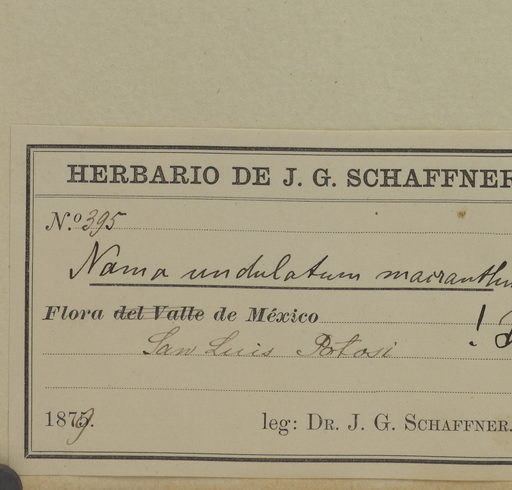 HERBARIO DE J. G. SCHAFFNER
N.º 395
Nama undulatum macranthu
Flora del Valle de México
!
San Luis Potosi
1879.
leg: DR. J. G. SCHAFFNER.